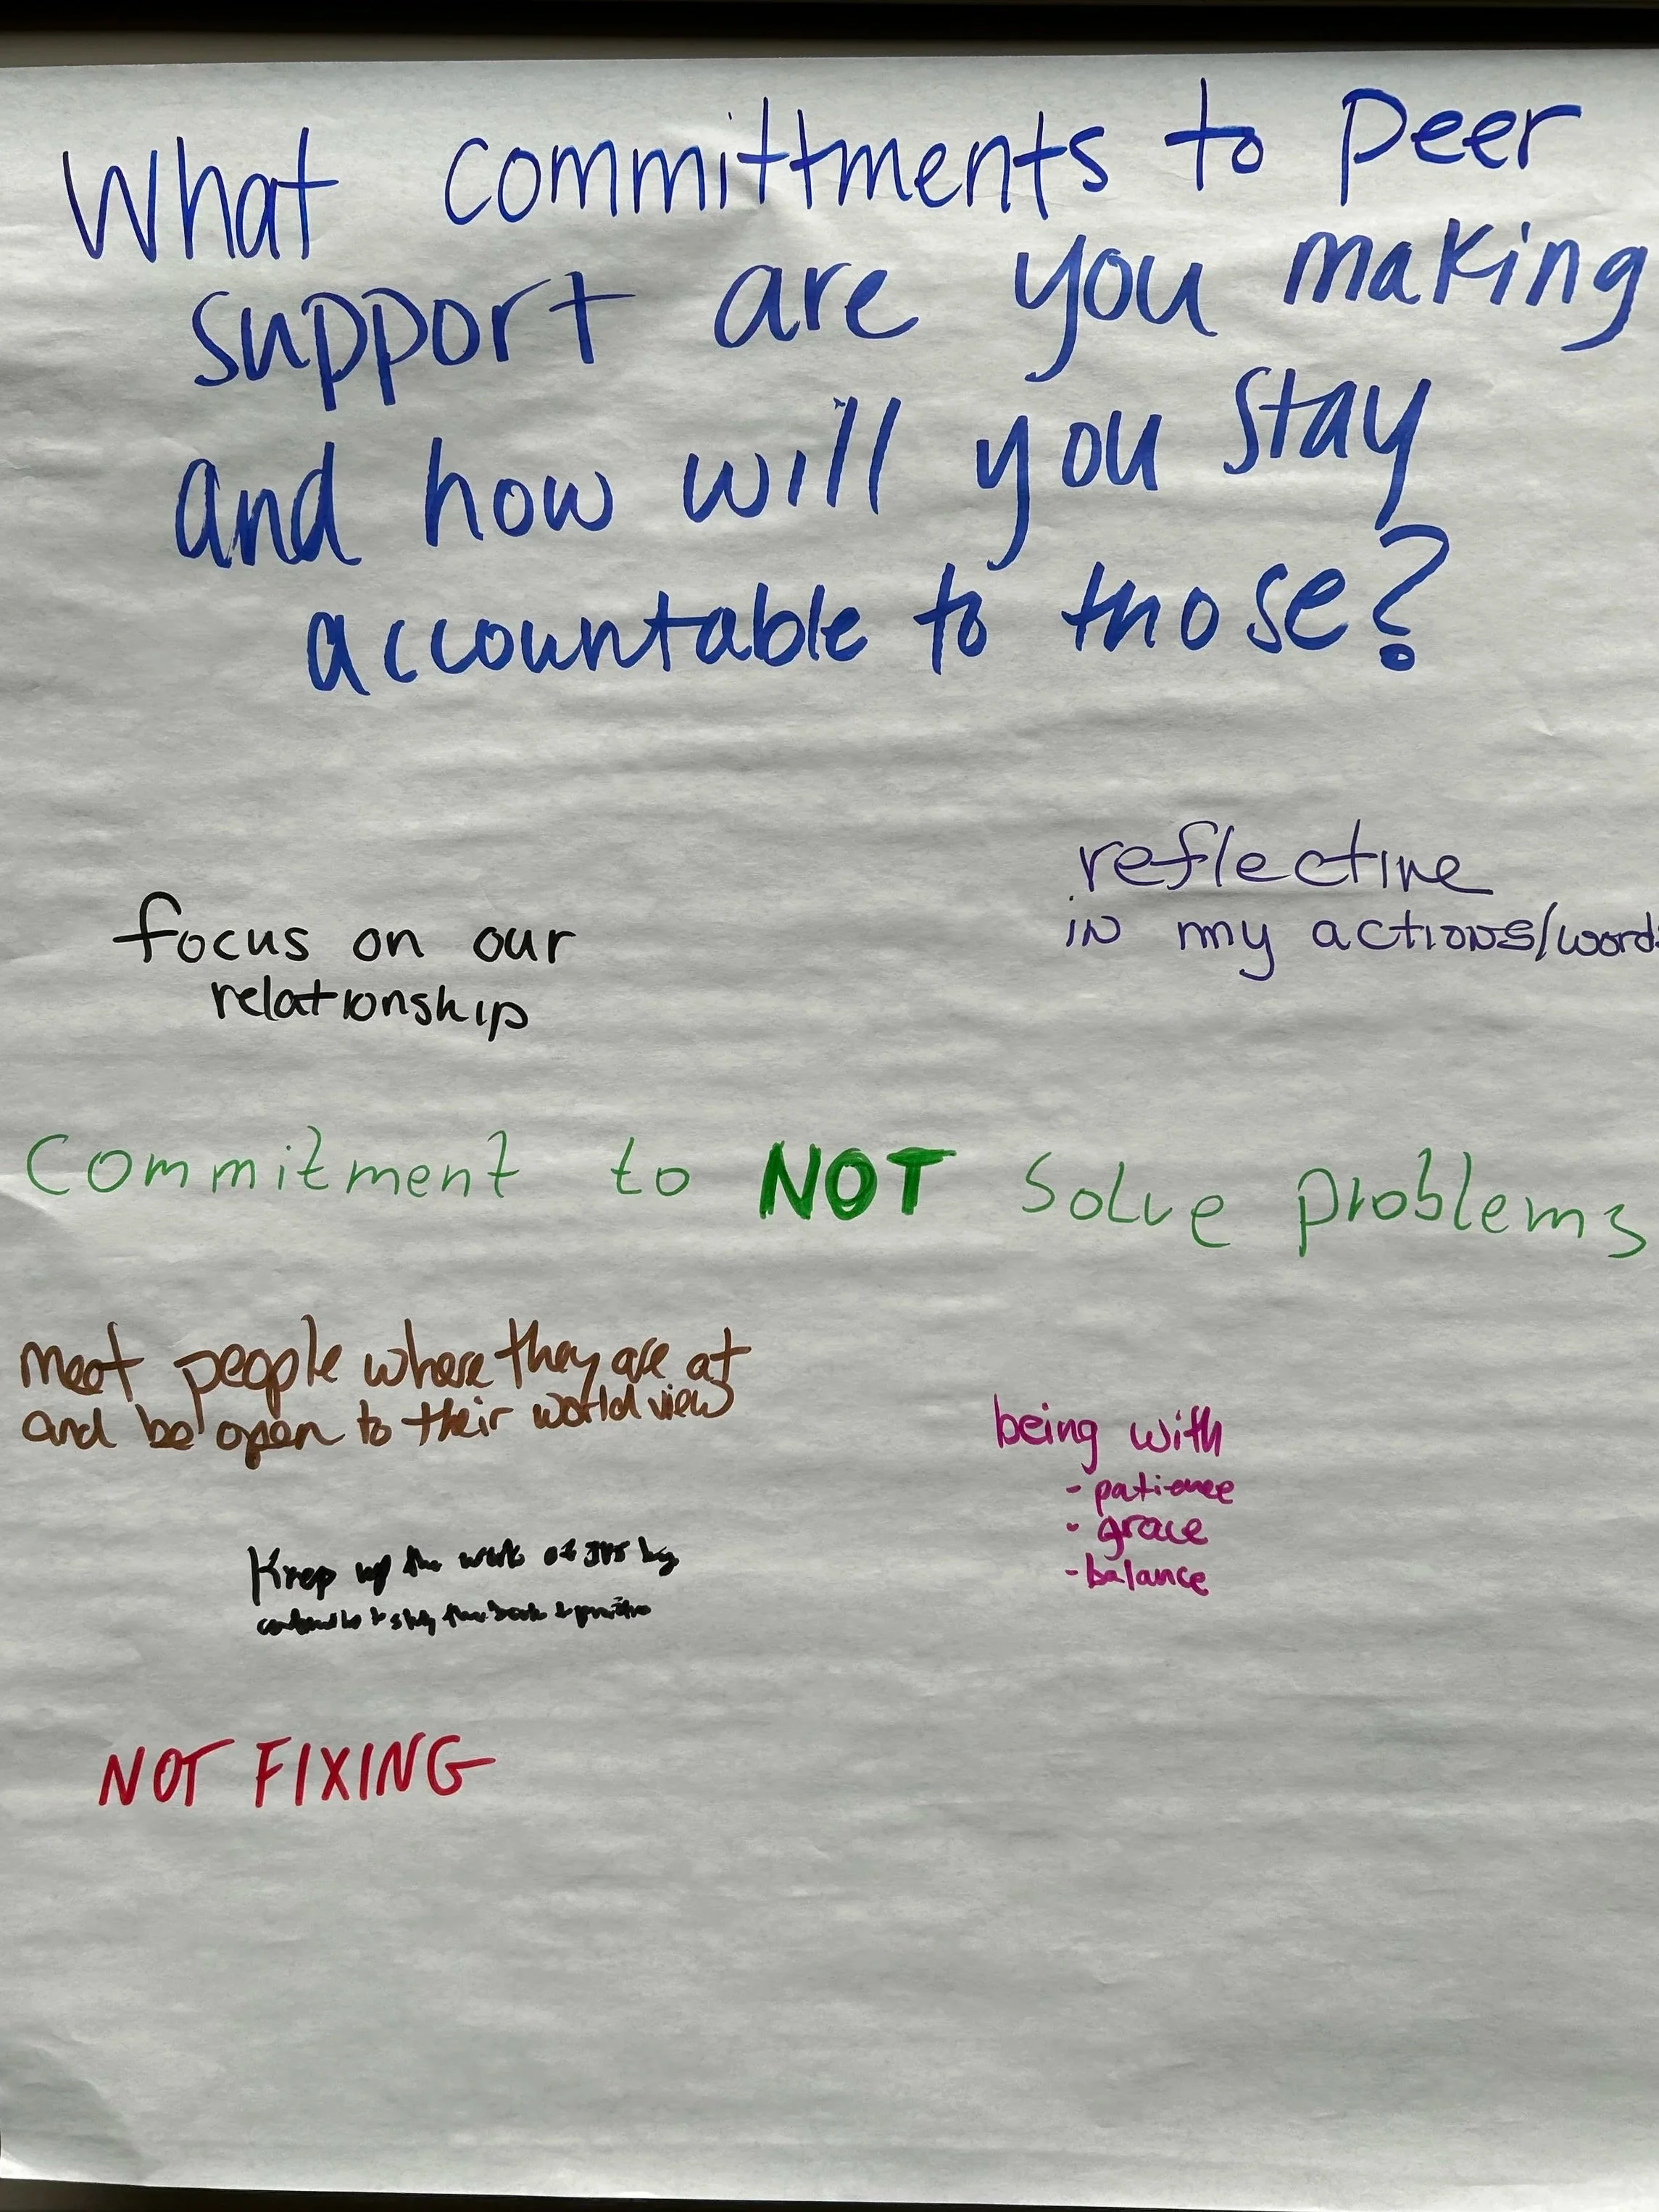 What committments to peer
support are you making
and how will you stay
accountable to those?
reflective
in my actions/words
focus on our
relationship
Commitment to NOT solve problems
meet people where they are at
and be open to their world view
being with
- patience
- grace
- balance
Keep up the work of by
to & practice
NOT FIXING